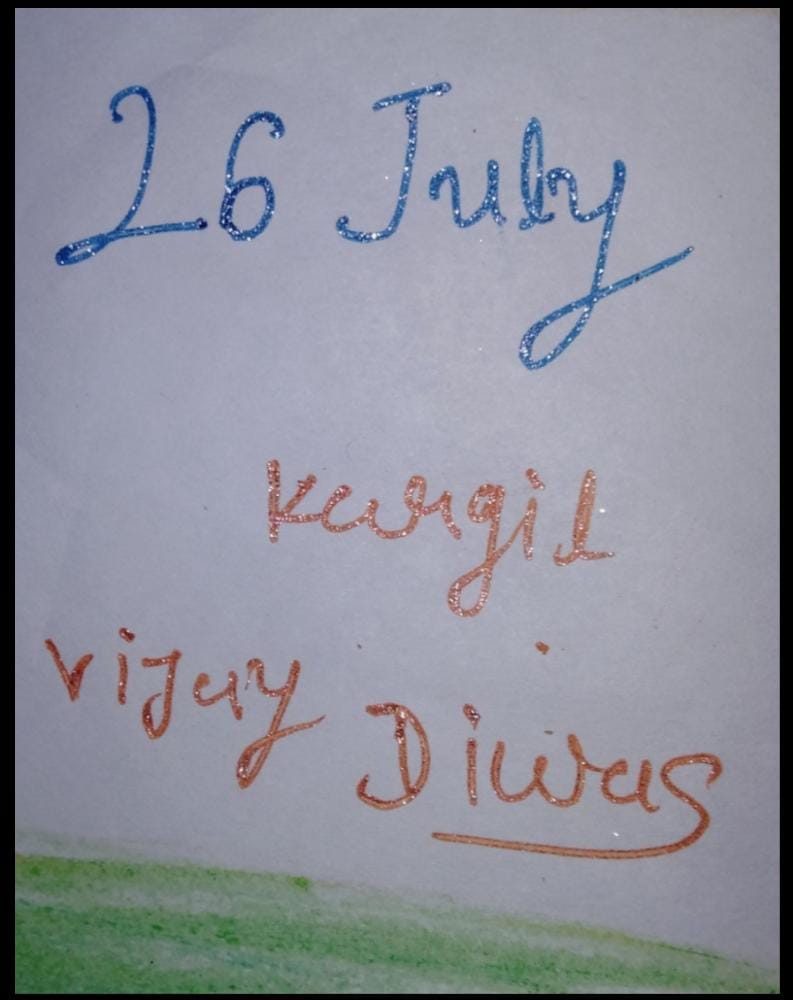 26 July
Kargil
Vijay Diwas